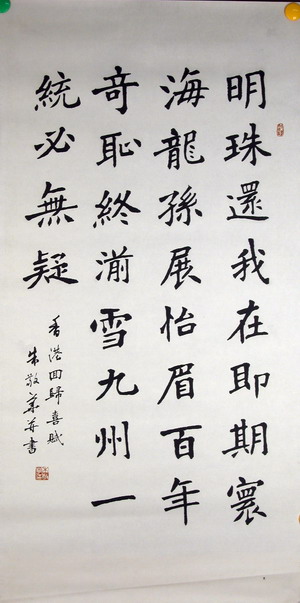 明珠還我在即期寰
海龍孫展怡眉百年
奇恥終湔雪九州一
統必無疑
香港回歸喜賦
朱敬華并書